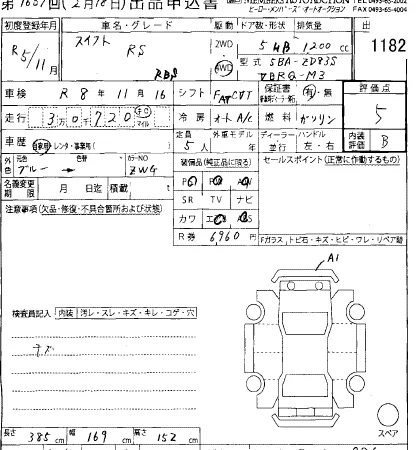 第1651回(2月18日)出品申込書
ヒーロー・メンバーズ・オートオークション FAX 0493-65-2002
FAX 0493-65-
初度登録年月 車名・グレード 駆動 ドア数・形状 排気量 出
R5/11月 スイフト RS RBS 2WD 4WD 5 HB 1200cc 1182
型式 5BA-ZD83S
車検 R 8年 11月 16 シフト FAT CVT 保証書 有・無 評価点
走行 3万0千720 キロ マイル 冷房 オートA/C 燃料 ガソリン 5
車歴 自家用・レンタ・事業用( ) 定員 5人 外車モデル 年 ディーラー・並行 ハンドル 左・右 内装評価 B
外色 元色 ブルー → 色替 カラーNO ZWG 装備品(純正品に限る) セールスポイント(正常に作動するもの)
名義変更期限 月 日迄 積載 t
PS PW AW
SR TV ナビ
カワ エアB ABS
注意事項(欠品・修復・不具合箇所および状態)
R券 6960円
Fガラス・トビ石・キズ・ヒビ・ワレ・リペア跡
A1
検査員記入 内装 汚レ・スレ・キズ・キレ・コゲ・穴
キズ
スペア
長さ 385cm 幅 169cm 高さ 152cm